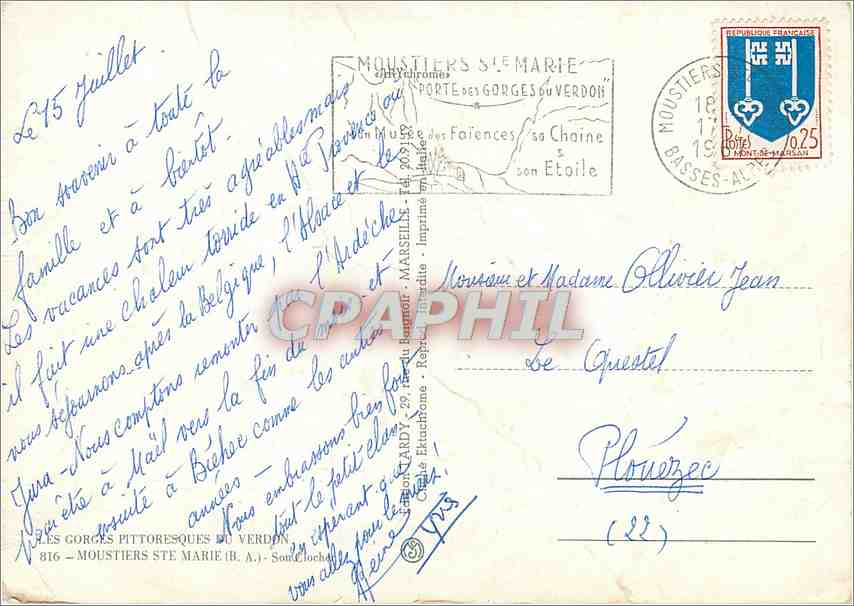 Le 15 Juillet.
Bon souvenir à toute la
famille et à bientôt.
Les vacances sont très agréables mais
il fait une chaleur torride en Hte Provence où
nous séjournons après la Belgique, l'Alsace et le
Jura - Nous comptons remonter par l'Ardèche
pour être à Maël vers la fin du mois et
ensuite à Bréhec comme les autres
années -
Nous embrassons bien fort
tout le petit clan
en espérant que
vous allez pour le mieux !
Yves
LES GORGES PITTORESQUES DU VERDON
816 — MOUSTIERS STE MARIE (B. A.) - Son Clocher
Edition TARDY - 29, rue du Baignoir - MARSEILLE - Tél.
Cliché Ektachrome - Reprod. interdite - Imprimé en Italie
«ARYchrome»
MOUSTIERS STE MARIE
"PORTE DES GORGES DU VERDON"
son Musée des Faïences sa Chaine
&
son Etoile
MOUSTIERS
18
17
19
BASSES-ALPES
REPUBLIQUE FRANÇAISE
POSTES
0,25
MONT-DE-MARSAN
Monsieur et Madame Ollivier Jean
Le Questel
Plouézec
(22)
CPAPHIL